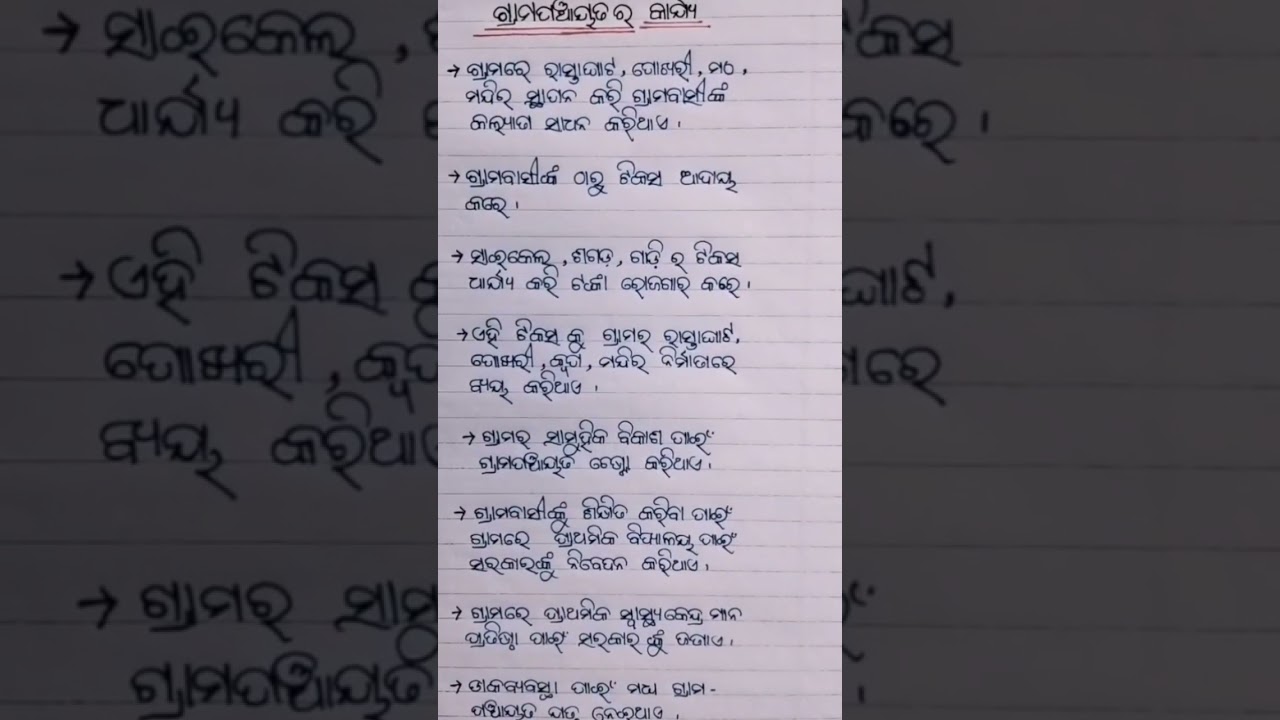 ଗ୍ରାମପଞ୍ଚାୟତ ର କାର୍ଯ୍ୟ
→ ଗ୍ରାମରେ ରାସ୍ତାଘାଟ, ପୋଖରୀ, ମଠ,
ମନ୍ଦିର ସ୍ଥାପନ କରି ଗ୍ରାମବାସୀଙ୍କ
କଲ୍ୟାଣ ସାଧନ କରିଥାଏ ।
→ ଗ୍ରାମବାସୀଙ୍କ ଠାରୁ ଟିକସ ଆଦାୟ
କରେ ।
→ ସାଇକେଲ, ଶଗଡ଼, ଗାଡ଼ି ର ଟିକସ
ଧାର୍ଯ୍ୟ କରି ଟଙ୍କା ରୋଜଗାର କରେ ।
→ ଏହି ଟିକସ କୁ ଗ୍ରାମର ରାସ୍ତାଘାଟ,
ପୋଖରୀ, କୂପ, ମନ୍ଦିର ନିର୍ମାଣରେ
ବ୍ୟୟ କରିଥାଏ ।
→ ଗ୍ରାମର ସାମୁହିକ ବିକାଶ ପାଇଁ
ଗ୍ରାମପଞ୍ଚାୟତ ଚେଷ୍ଟା କରିଥାଏ ।
→ ଗ୍ରାମବାସୀଙ୍କୁ ଶିକ୍ଷିତ କରିବା ପାଇଁ
ଗ୍ରାମରେ ପ୍ରାଥମିକ ବିଦ୍ୟାଳୟ ପାଇଁ
ସରକାରଙ୍କୁ ନିବେଦନ କରିଥାଏ ।
→ ଗ୍ରାମରେ ପ୍ରାଥମିକ ସ୍ୱାସ୍ଥ୍ୟକେନ୍ଦ୍ର ମାନ
ପ୍ରତିଷ୍ଠା ପାଇଁ ସରକାର ଙ୍କୁ ଜଣାଏ ।
→ ଡାକବ୍ୟବସ୍ଥା ପାଇଁ ମଧ୍ୟ ଗ୍ରାମ-
ପଞ୍ଚାୟତ ଯତ୍ନ ନେଇଥାଏ ।